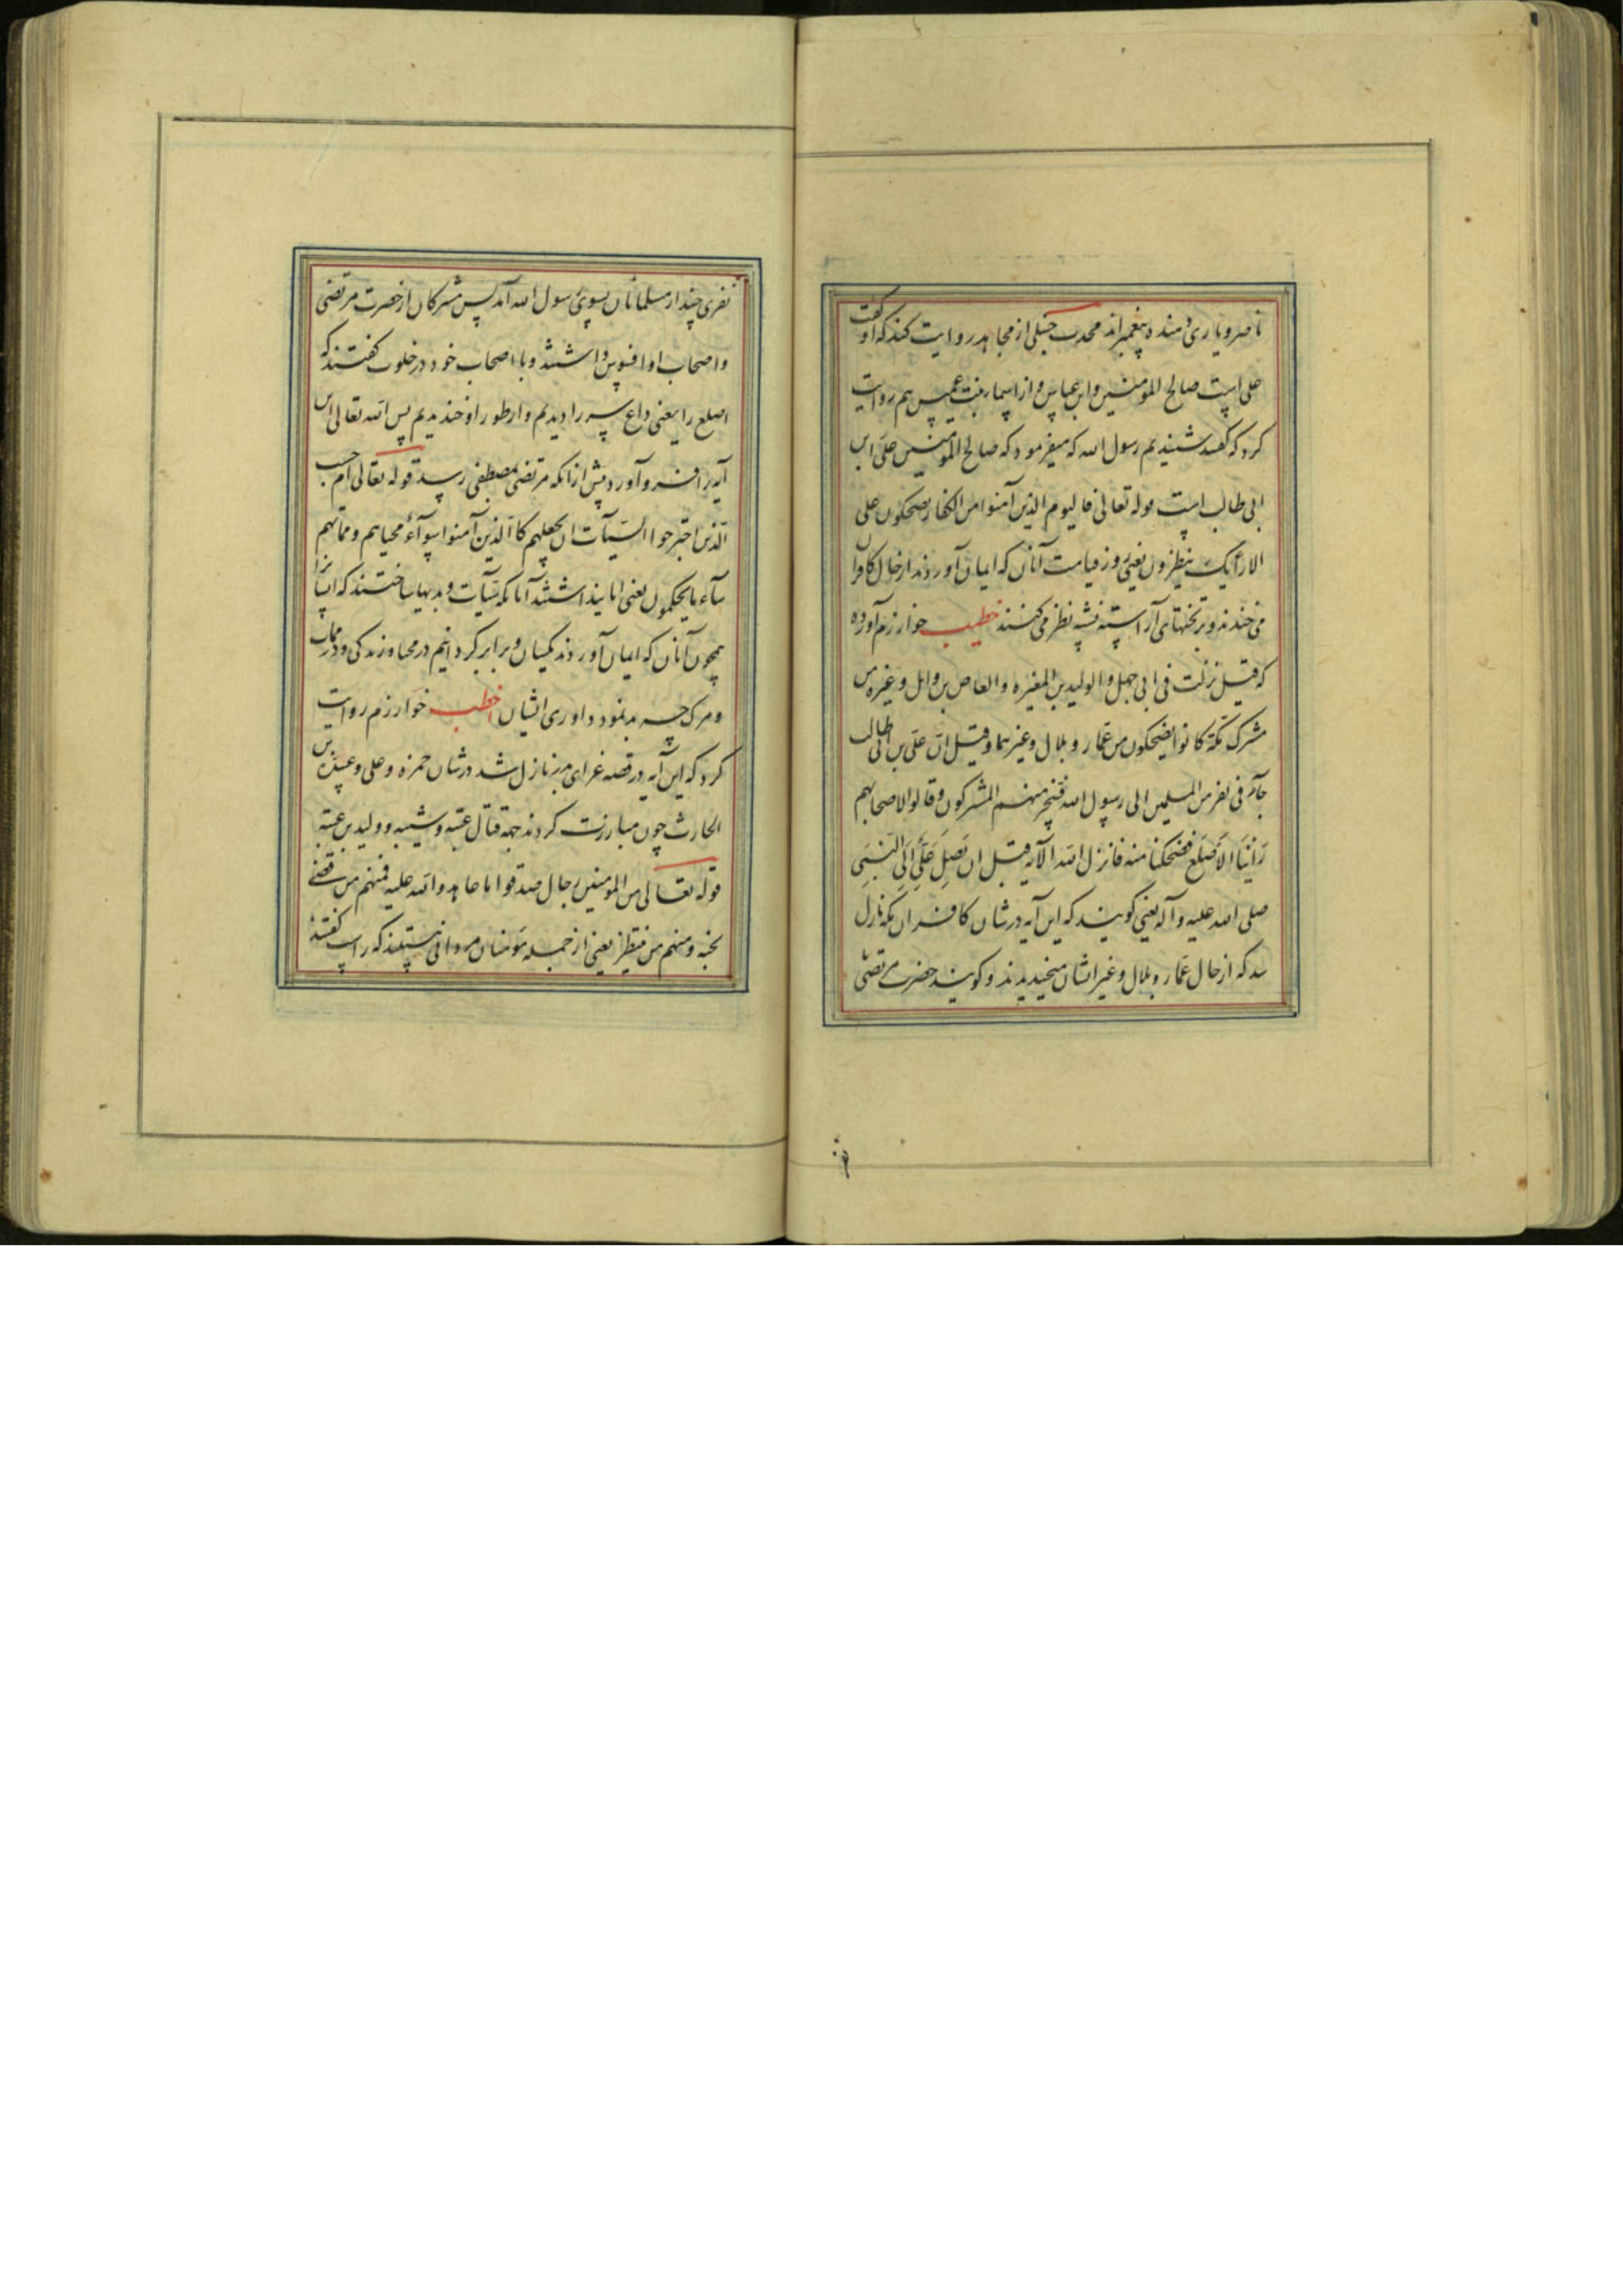 ناصر و یاری دهنده پیغمبراند محدث حنبلی از مجاهد روایت کند که او گفت
علی است صالح المومنین و ابن عباس و از اسما بنت عمیس هم روایت
کرد که گفت شنیدیم رسول الله که میفرمود که صالح المومنین علی ابن
ابی طالب است قوله تعالی فالیوم الذین آمنوا من الکفار یضحکون علی
الارائک ینظرون یعنی روز قیامت آنان که ایمان آوردند از حال کافران
می خندند و بر تختهای آراسته نشسته نظر می کنند خطیب خوارزم آورده
که قیل نزلت فی ابی جهل و الولید بن المغیره و العاص بن وایل و غیره من
مشرک مکة کانوا یضحکون من عمار و بلال و غیرهما و قیل ان علی بن ابی طالب
جآء فی نفر من المسلمین الی رسول الله فسخر منهم المشرکون و قالوا لاصحابهم
رَاَینَا الاَصلَع فضحکنا منه فانزل الله الآیه قبل ان یَصِلَ عَلَی اِلَی النَبِی
صلی الله علیه و آله یعنی کویند که این آیه در شان کافران مکه نازل
شد که از حال عمار و بلال و غیر ایشان میخندیدند و کویند حضرت مرتضی
نفری چند از مسلمانان بسوی رسول الله آمد پس مشرکان از حضرت مرتضی
و اصحاب او افسوس داشتند و با اصحاب خود در خلوت گفتند که
اصلع را یعنی داغ سر را دیدیم و از طور او خندیدیم پس الله تعالی این
آیه را فرو آورد پیش از آنکه مرتضی بمصطفی رسد قوله تعالی ام حسب
الذین اجترحوا السیآت ان نجعلهم کالذین آمنوا سوآءً محیاهم و مماتهم
سآء ما یحکمون یعنی ایا پنداشتند آنانکه سیآت و بدیها ساختند که ایشانرا
همچون آنان که ایمان آوردند یکسان و برابر گردانیم در محیا و زندگی و در ممات
و مرک چه بد نمود داوری ایشان اخطب خوارزم روایت
کرد که این آیه در قصه غزای بدر نازل شد در شان حمزه و علی و عبیدة بن
الحارث چون مبارزت کردند جهة قتال عتبه و شیبه و ولید بن عتبه
قوله تعالی من المومنین رجال صدقوا ما عاهدوا الله علیه فمنهم من قضی
نحبه و منهم من ینتظر یعنی از جمله مؤمنان مردانی هستند که راست گفتند